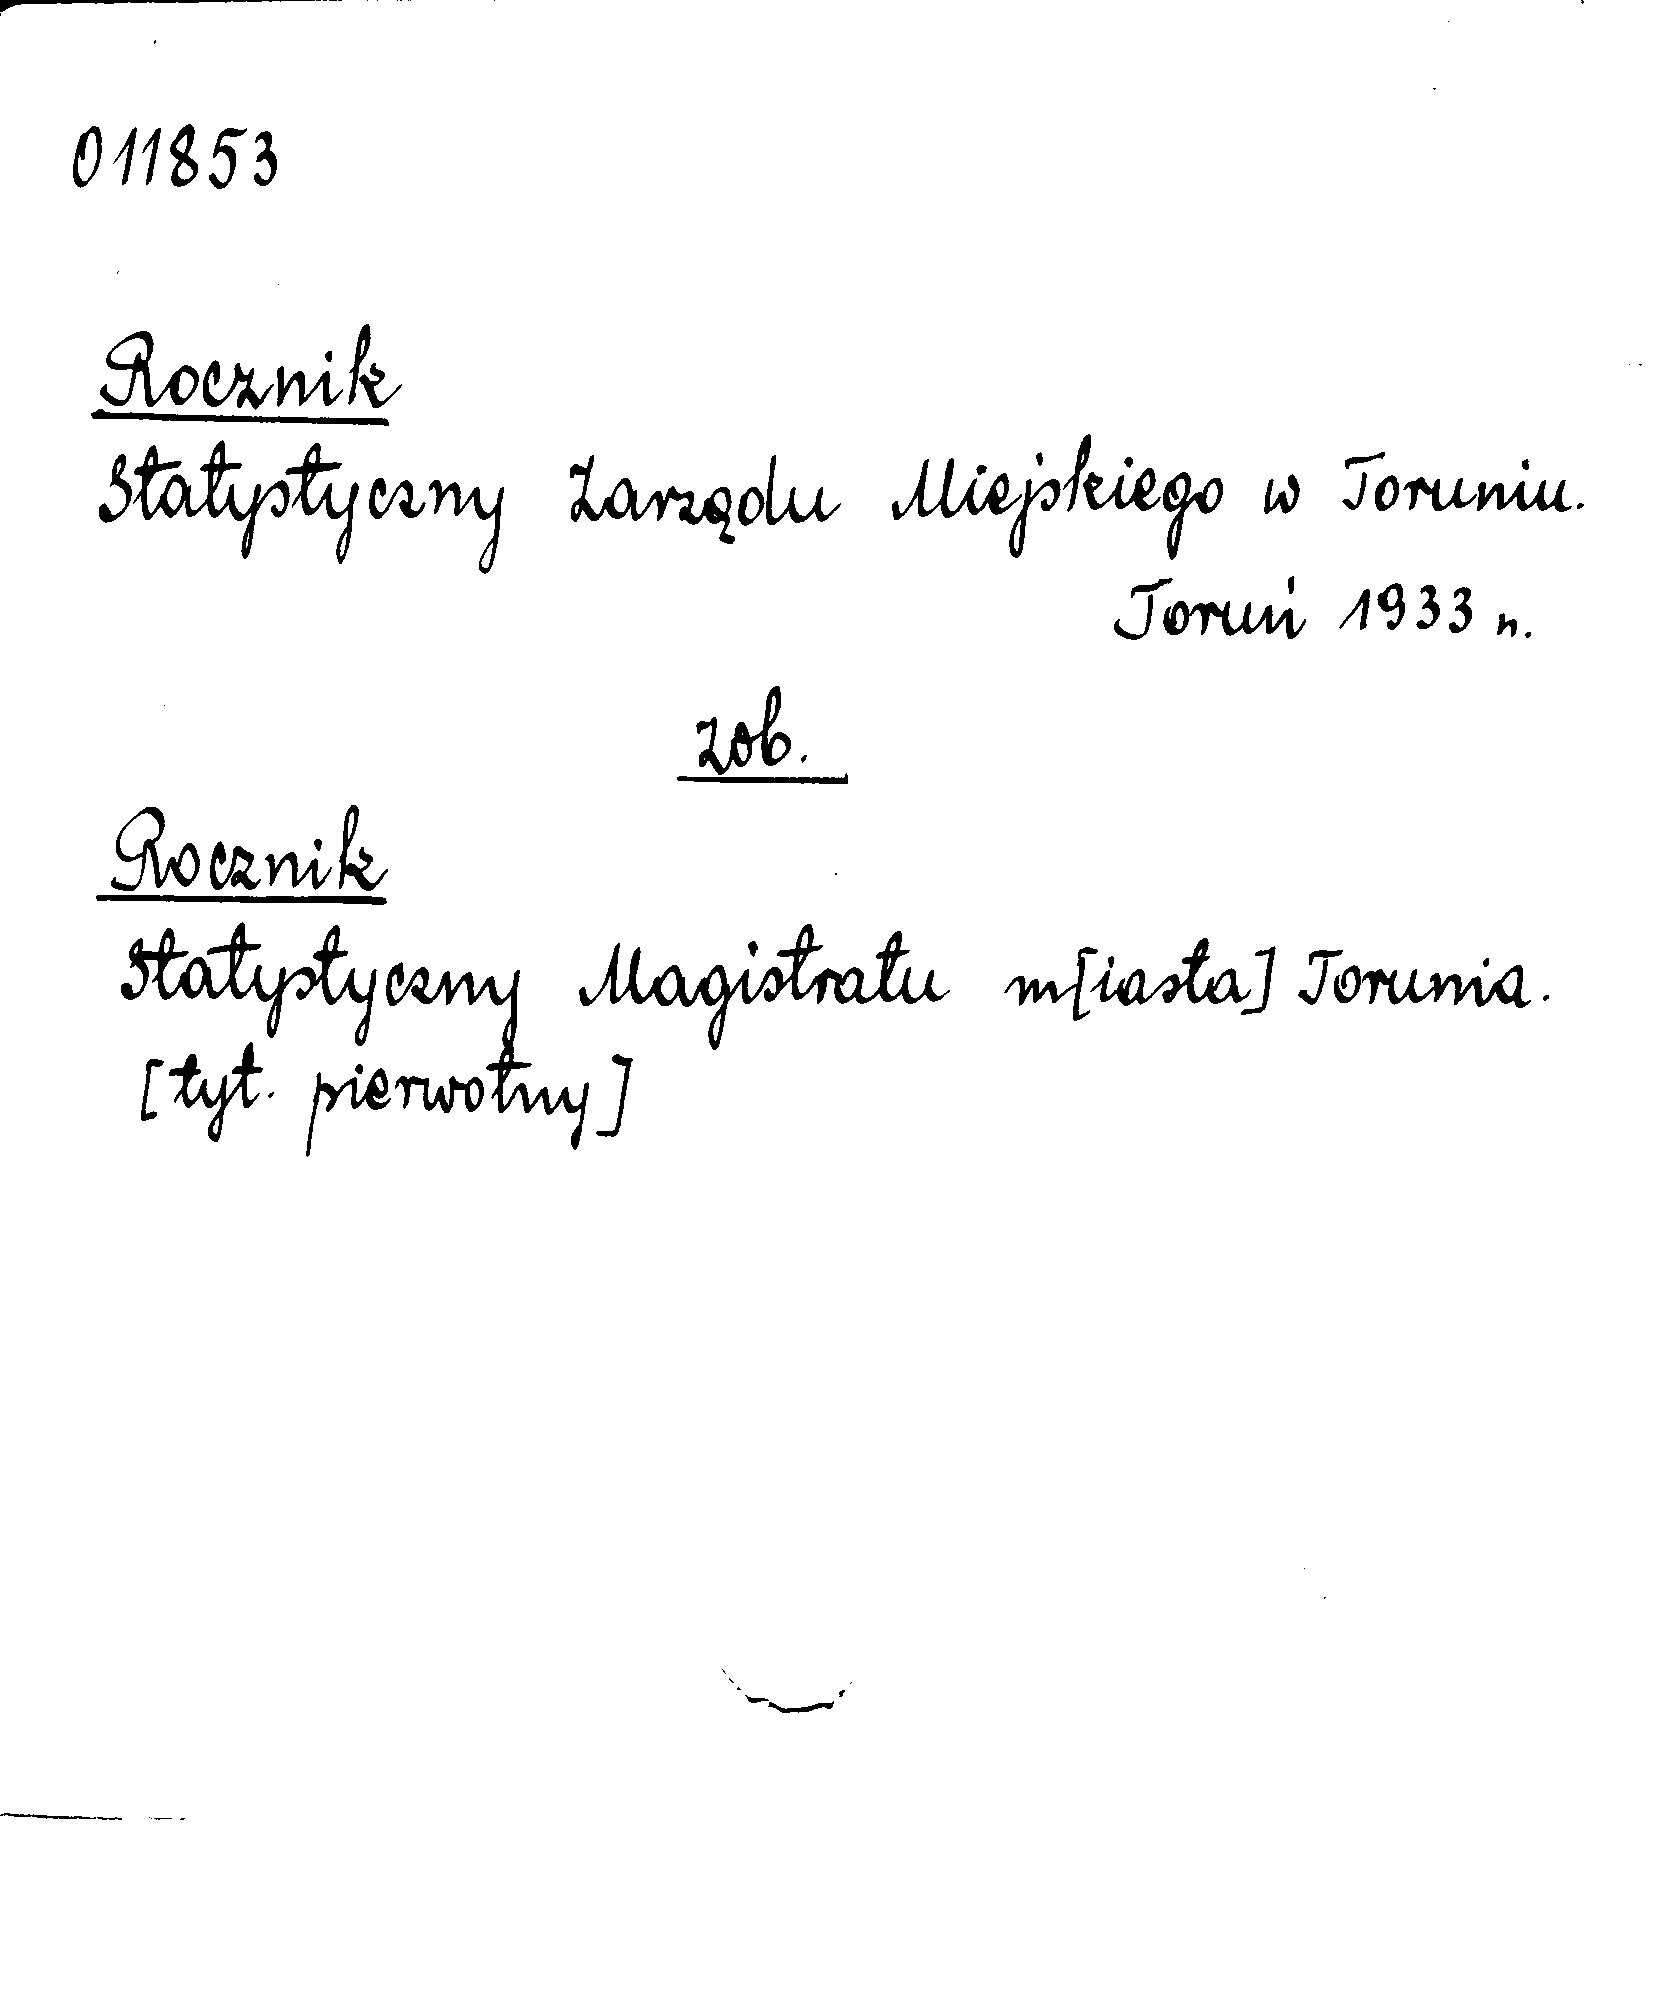 011853
Rocznik
Statystyczny Zarządu Miejskiego w Toruniu.
Toruń 1933 n.
zob.
Rocznik
Statystyczny Magistratu m[iasta] Torunia.
[tyt. pierwotny]